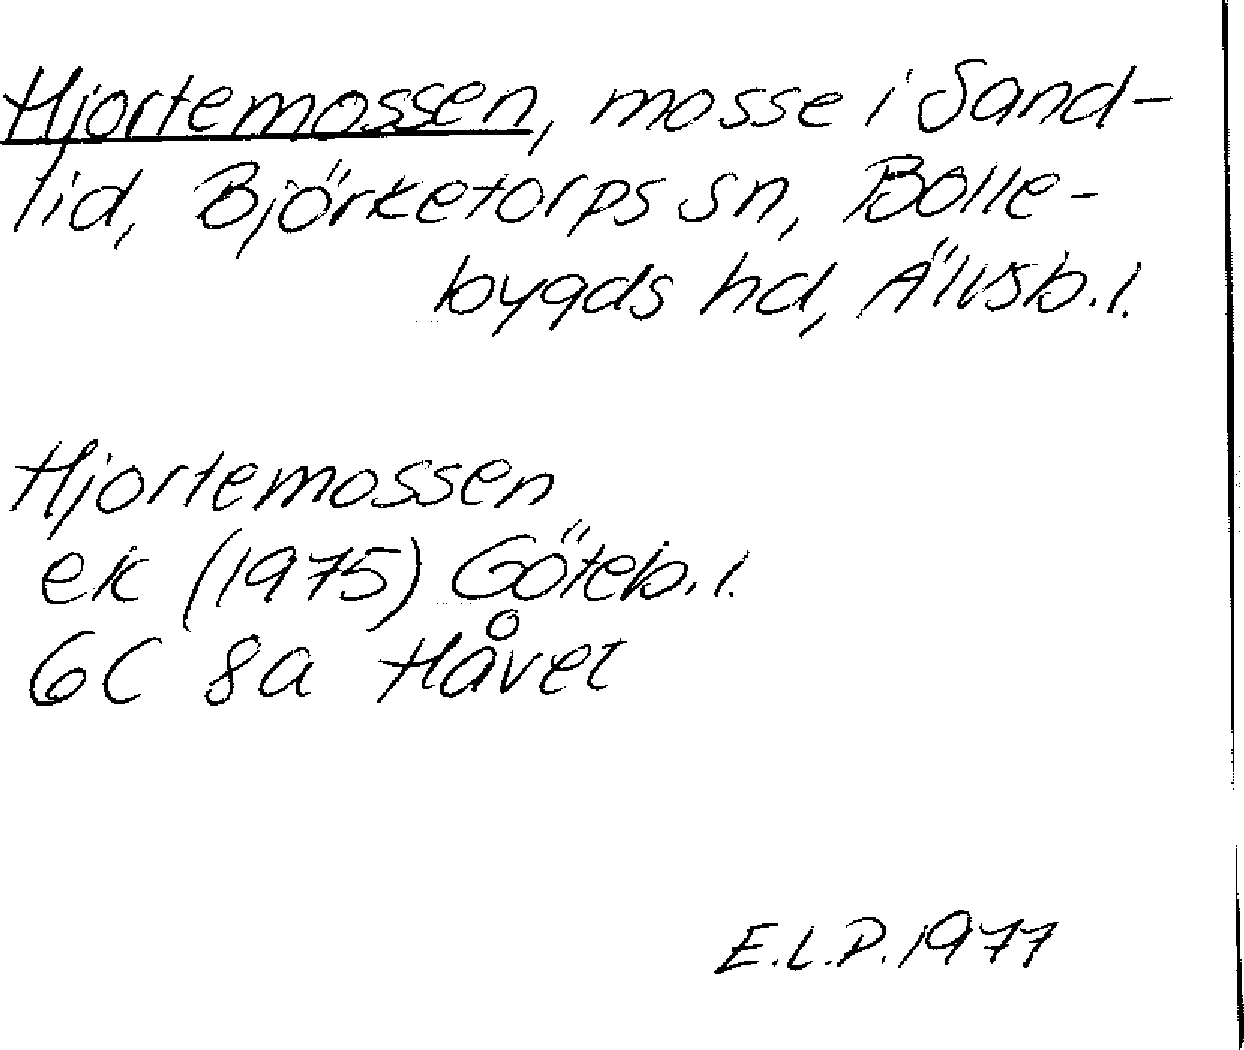 Hjortemossen, mosse i Sand-
lid, Björketorps sn, Bolle-
bygds hd, Älvsb. l.
Hjortemossen
ek (1975) Göteb. l.
6C 8a Håvet
E.L.P. 1977